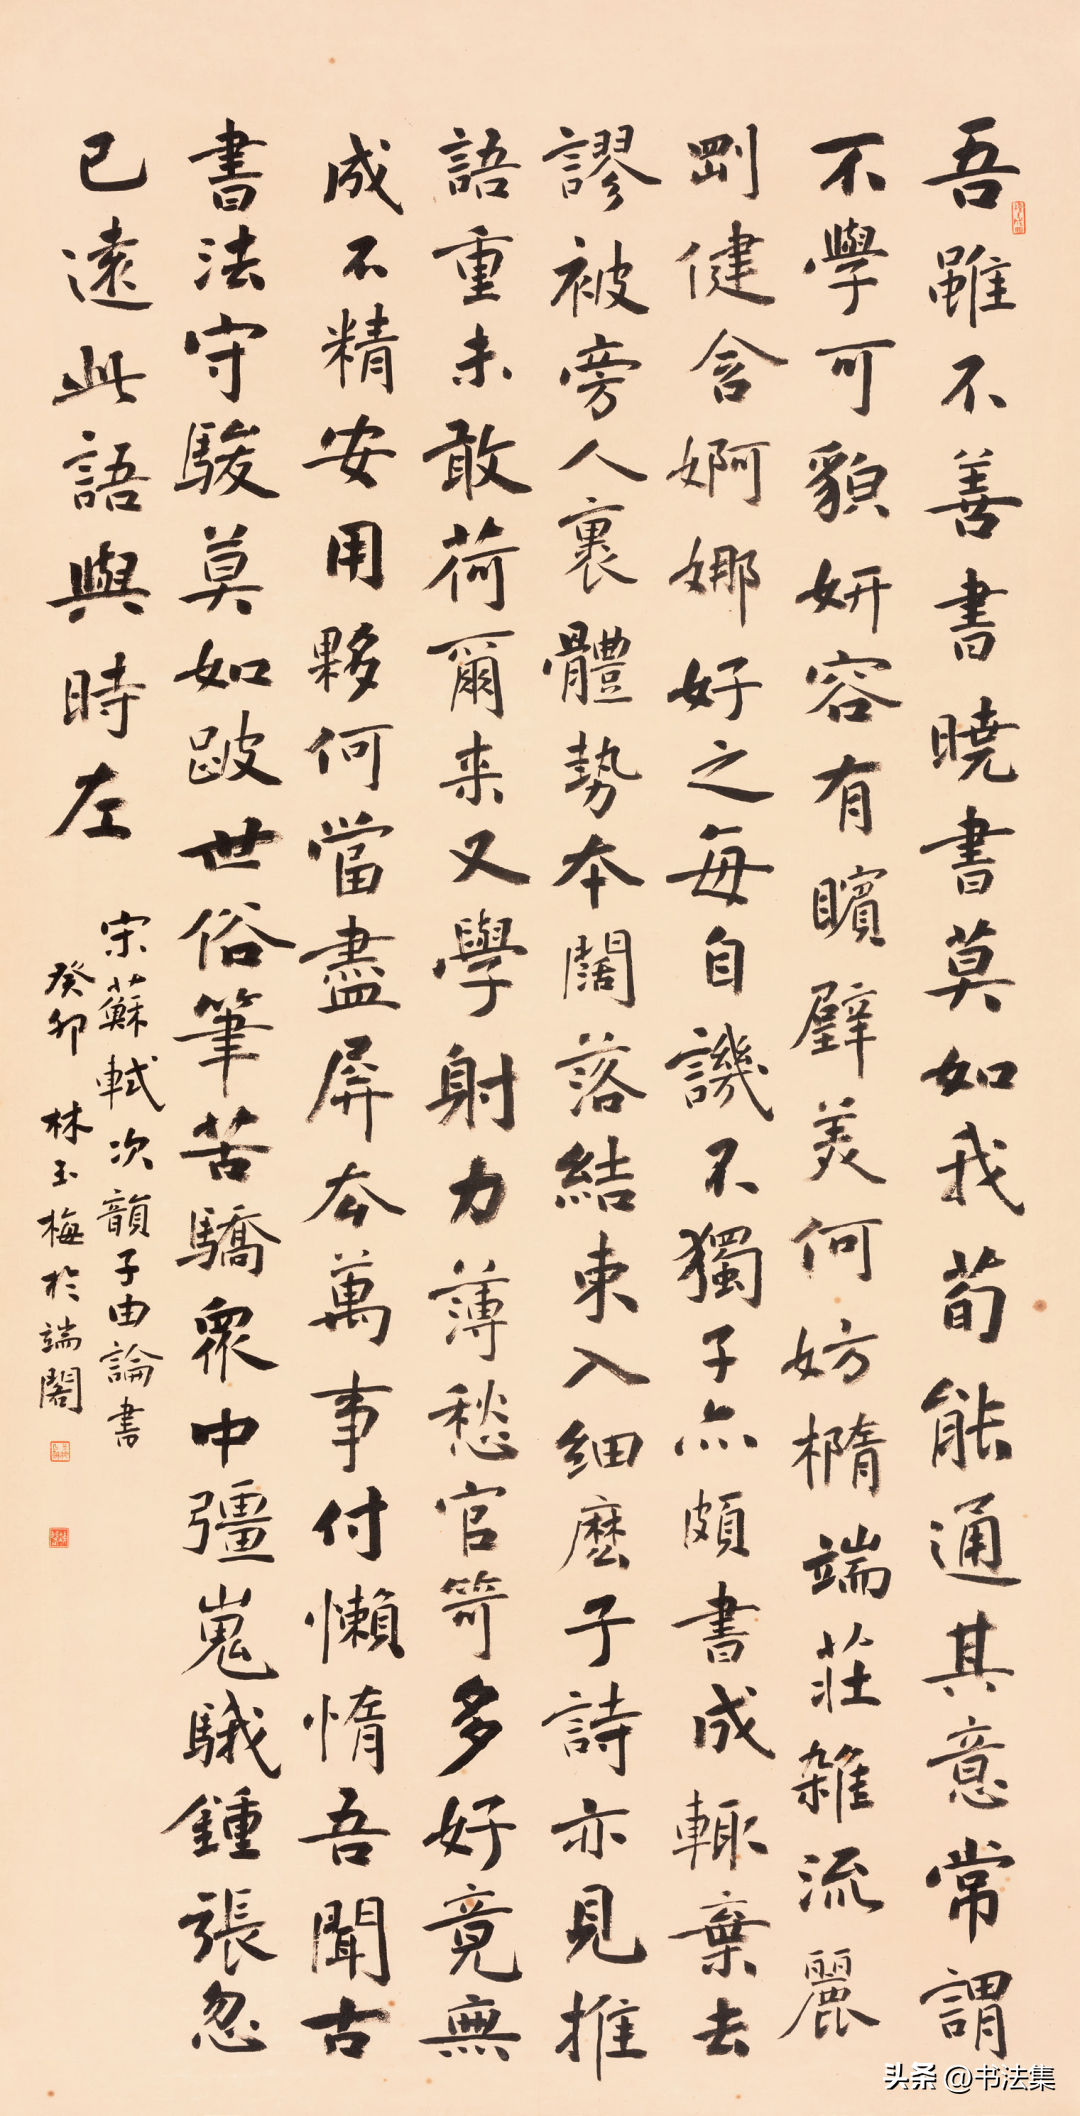 吾雖不善書曉書莫如我苟能通其意常謂
不學可貌妍容有矉璧美何妨橢端莊雜流麗
剛健含婀娜好之每自譏不獨子亦頗書成輒棄去
謬被旁人裹體勢本闊落結束入細麽子詩亦見推
語重未敢荷爾来又學射力薄愁官笴多好竟無
成不精安用夥何當盡屏去萬事付懶惰吾聞古
書法守駿莫如跛世俗筆苦驕眾中彊嵬騀鍾張忽
已遠此語與時左
宋蘇軾次韻子由論書
癸卯林玉梅於端閣
头条 @书法集